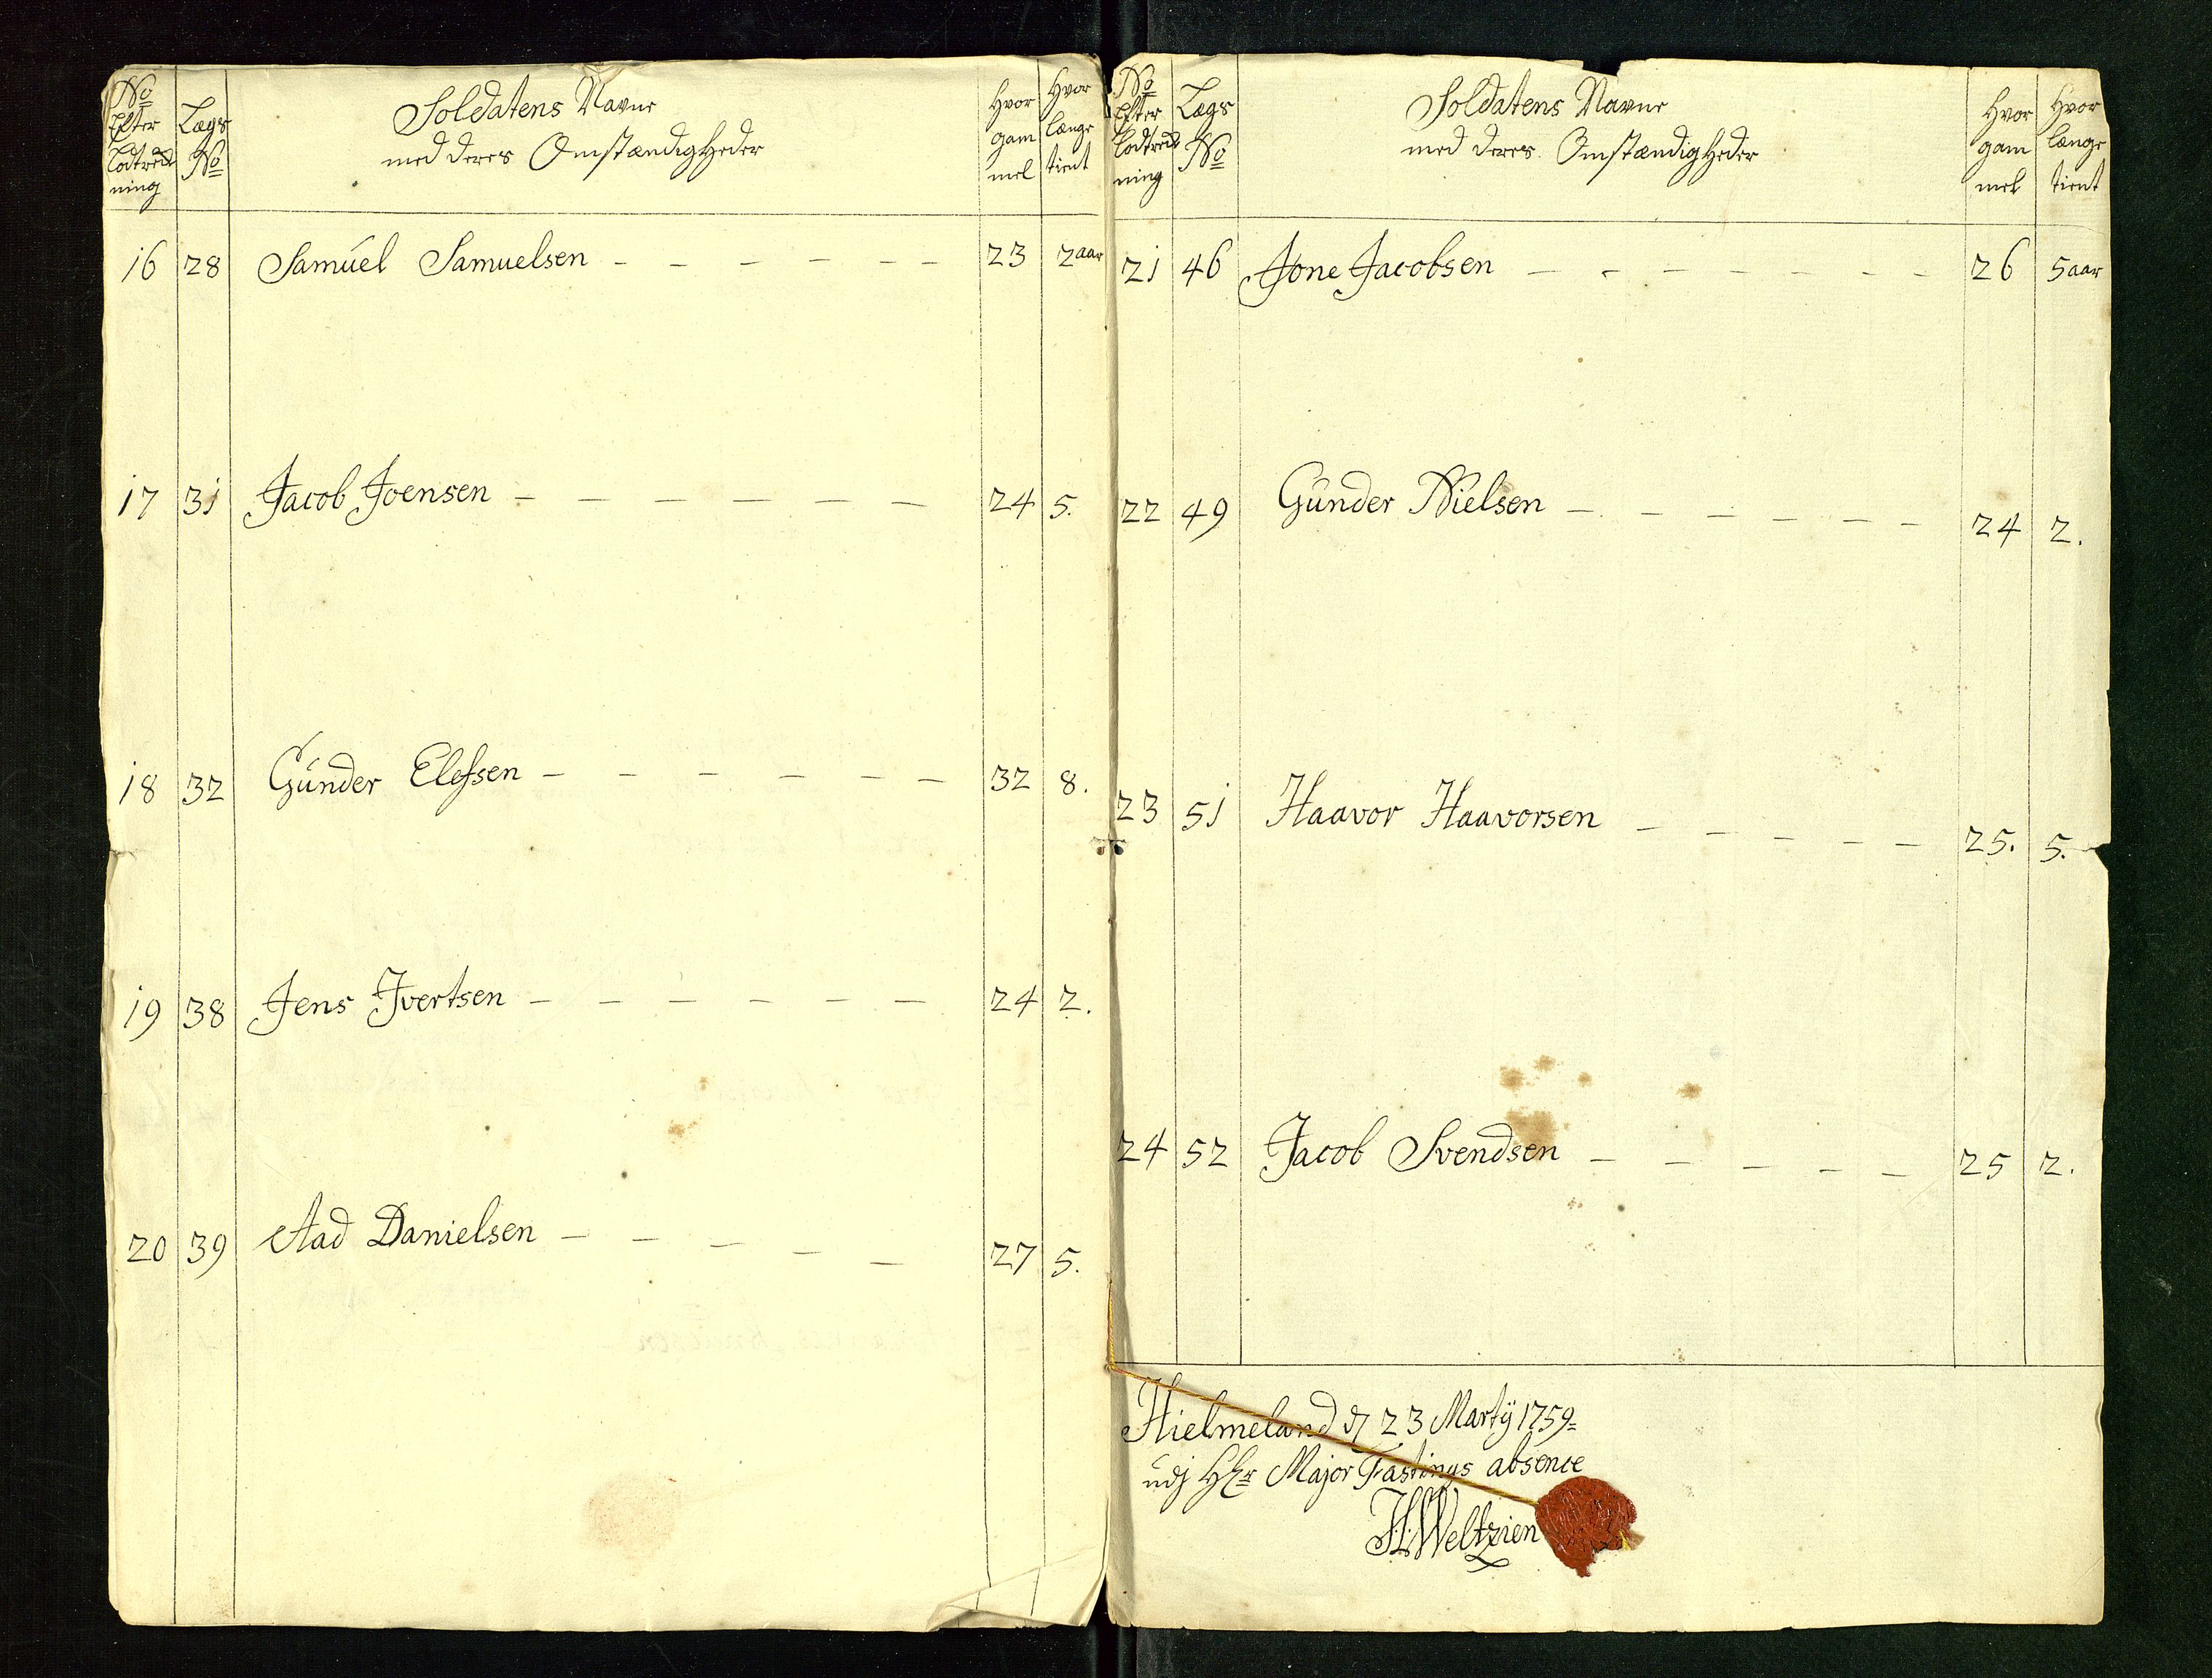 No Efter Lodtræk ning
Lægs No
Soldatens Navne
med deres Omstændigheder
Hvor gam mel
Hvor længe tient
16 28 Samúel Samuelsen - - - - - - 23 2 aar
17 31 Jacob Joensen - - - - - - 24 5.
18 32 Gúnder Elefsen - - - - - - 32 8.
19 38 Jens Jvertsen - - - - - - 24 2.
20 39 Aad Danielsen - - - - - 27 5.
No Efter Lodtræk ning
Lægs No
Soldatens Navne
med deres Omstændigheder
Hvor gam mel
Hvor længe tient
21 46 Jone Jacobsen - - - - - - - 26 5 aar
22 49 Gúnder Nielsen - - - - - - 24 2.
23 51 Haavor Haavorsen - - - - - 25. 5.
24 52 Jacob Svendsen - - - - - 25 2.
Hielmeland d 23 Martÿ 1759=
údj Hr Major Fastings absence
H:Weltzien